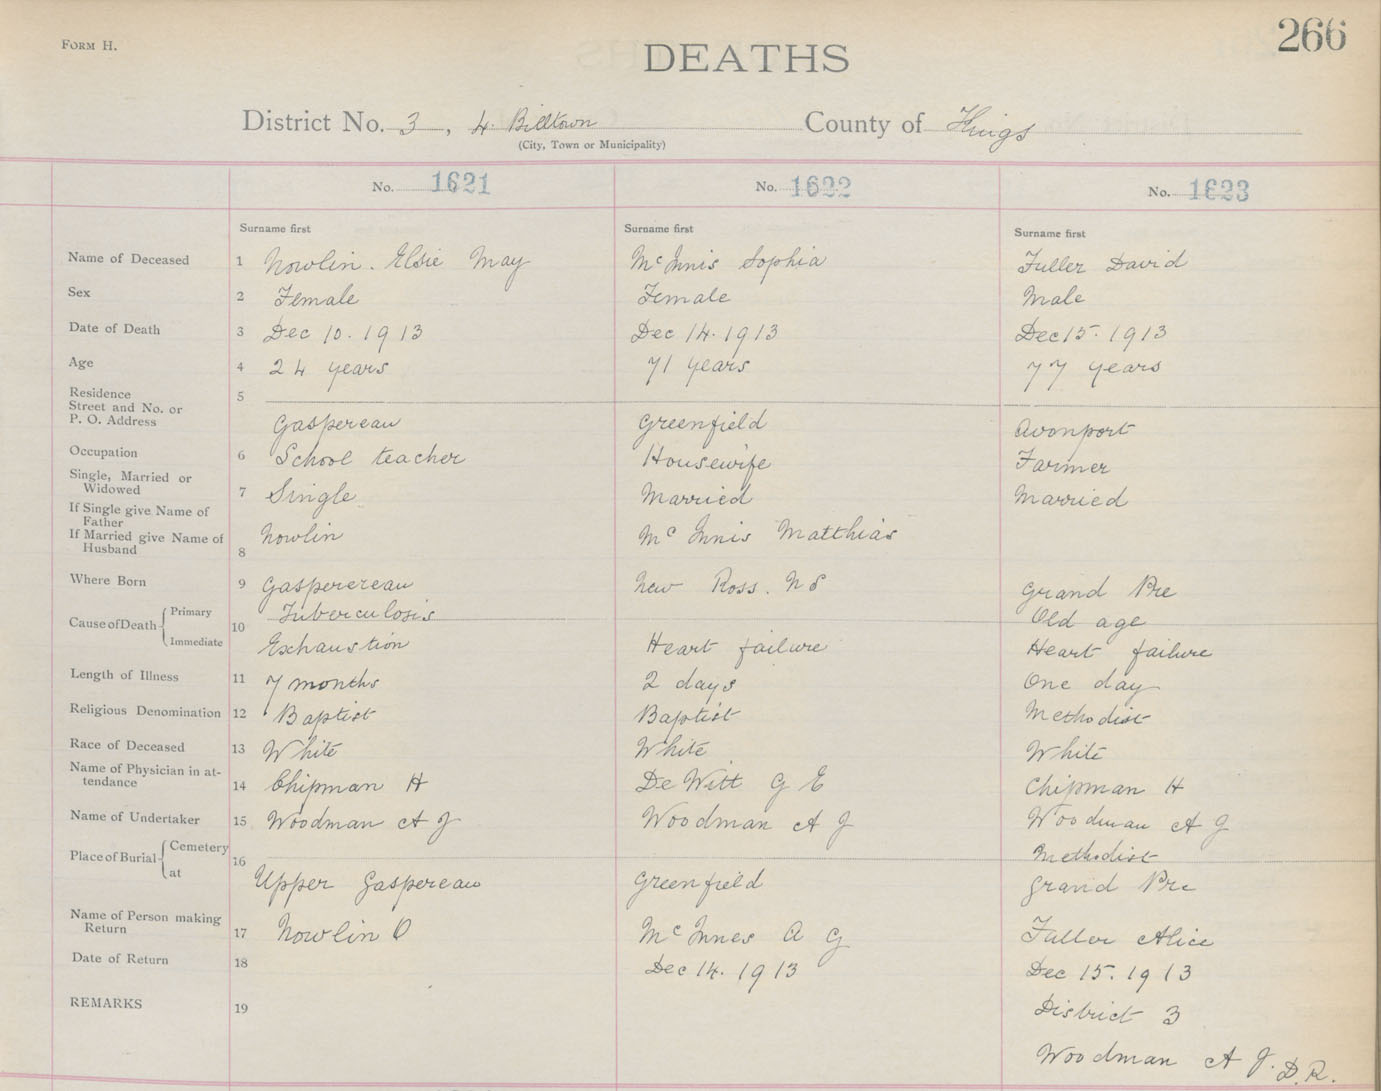 FORM H.
266
DEATHS
District No. 3, 4. Billtown County of Kings
(City, Town or Municipality)
No. 1621 No. 1622 No. 1623
Surname first Surname first Surname first
Name of Deceased 1 Nowlin. Elsie May McInnis Sophia Fuller David
Sex 2 Female Female Male
Date of Death 3 Dec 10. 1913 Dec 14. 1913 Dec 15. 1913
Age 4 24 years 71 years 77 years
Residence 5
Street and No. or
P. O. Address Gaspereau Greenfield Avonport
Occupation 6 School teacher Housewife Farmer
Single, Married or
Widowed 7 Single Married Married
If Single give Name of
Father
If Married give Name of
Husband 8 Nowlin McInnis Matthias
Where Born 9 Gasperereau New Ross. N S Grand Pre
Cause of Death Primary 10 Tuberculosis Old age
Immediate Exhaustion Heart failure Heart failure
Length of Illness 11 7 months 2 days One day
Religious Denomination 12 Baptist Baptist Methodist
Race of Deceased 13 White White White
Name of Physician in at-
tendance 14 Chipman H DeWitt G E Chipman H
Name of Undertaker 15 Woodman A J Woodman A J Woodman A J
Place of Burial Cemetery 16 Methodist
at Upper Gaspereau Greenfield Grand Pre
Name of Person making
Return 17 Nowlin O McInnes A G Fuller Alice
Date of Return 18 Dec 14. 1913 Dec 15. 1913
REMARKS 19 District 3
Woodman A J. D R.